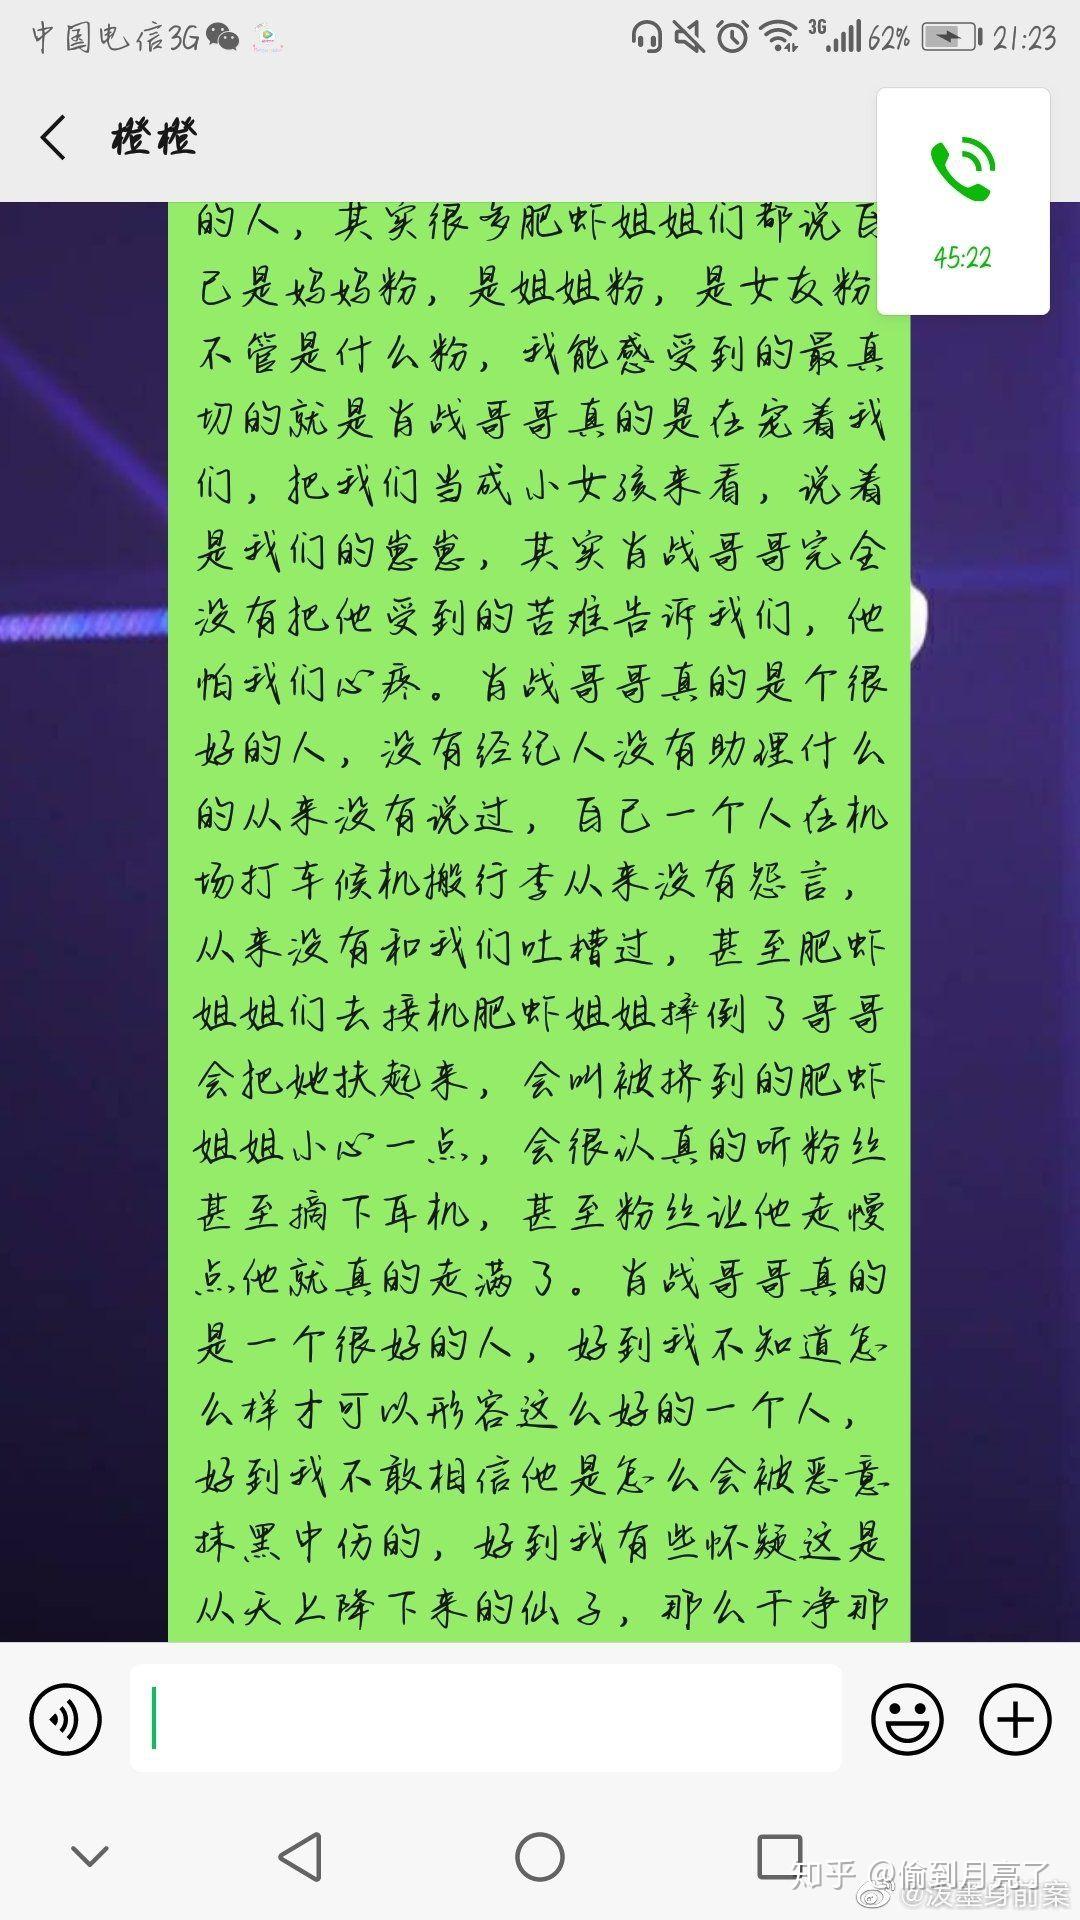 中国电信3G 3G 62% 21:23
橙橙
45:22
的人，其实很多肥虾姐姐们都说自
己是妈妈粉，是姐姐粉，是女友粉
不管是什么粉，我能感受到的最真
切的就是肖战哥哥真的是在宠着我
们，把我们当成小女孩来看，说着
是我们的崽崽，其实肖战哥哥完全
没有把他受到的苦难告诉我们，他
怕我们心疼。肖战哥哥真的是个很
好的人，没有经纪人没有助理什么
的从来没有说过，自己一个人在机
场打车候机搬行李从来没有怨言，
从来没有和我们吐槽过，甚至肥虾
姐姐们去接机肥虾姐姐摔倒了哥哥
会把她扶起来，会叫被挤到的肥虾
姐姐小心一点，会很认真的听粉丝
甚至摘下耳机，甚至粉丝让他走慢
点他就真的走满了。肖战哥哥真的
是一个很好的人，好到我不知道怎
么样才可以形容这么好的一个人，
好到我不敢相信他是怎么会被恶意
抹黑中伤的，好到我有些怀疑这是
从天上降下来的仙子，那么干净那
知乎 @偷到月亮了
@泼墨身前案